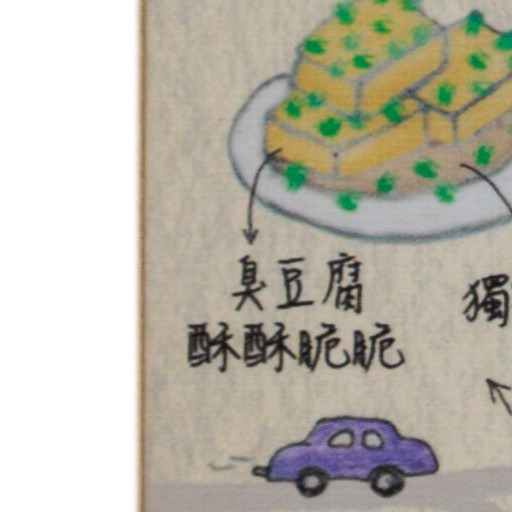 臭豆腐
酥酥脆脆
獨